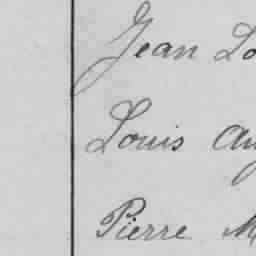 Jean Lo
Louis Aug
Pierre M